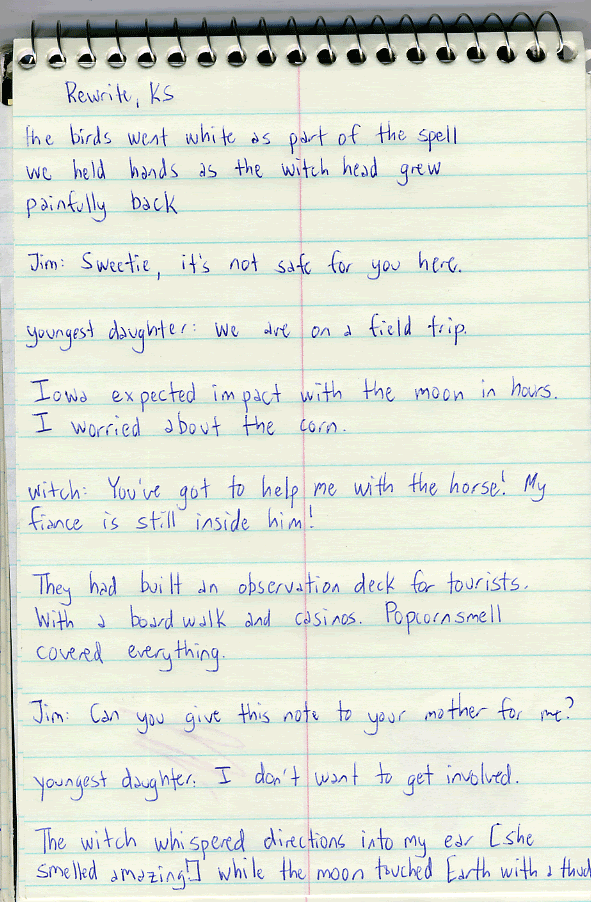 Rewrite, KS
the birds went white as part of the spell
we held hands as the witch head grew
painfully back
Jim: Sweetie, it's not safe for you here.
youngest daughter: we are on a field trip.
Iowa expected impact with the moon in hours.
I worried about the corn.
witch: You've got to help me with the horse! My
fiance is still inside him!
They had built an observation deck for tourists.
With a boardwalk and casinos. Popcorn smell
covered everything.
Jim: Can you give this note to your mother for me?
youngest daughter: I don't want to get involved.
The witch whispered directions into my ear [she
smelled amazing!] while the moon touched Earth with a thud